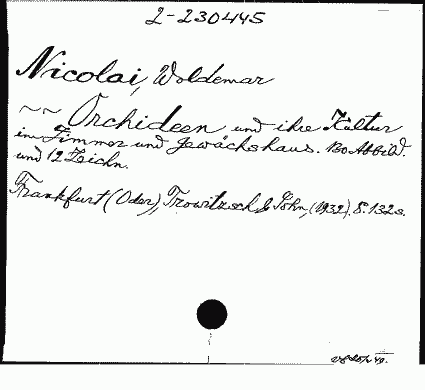 2-230445
Nicolai, Woldemar
~~ Orchideen und ihre Kultur
im Zimmer und Gewächshaus. 130 Abbild.
und 12 Zeichn.
Frankfurt (Oder), Trowitzsch & Sohn, (1932). 8. 132 s.